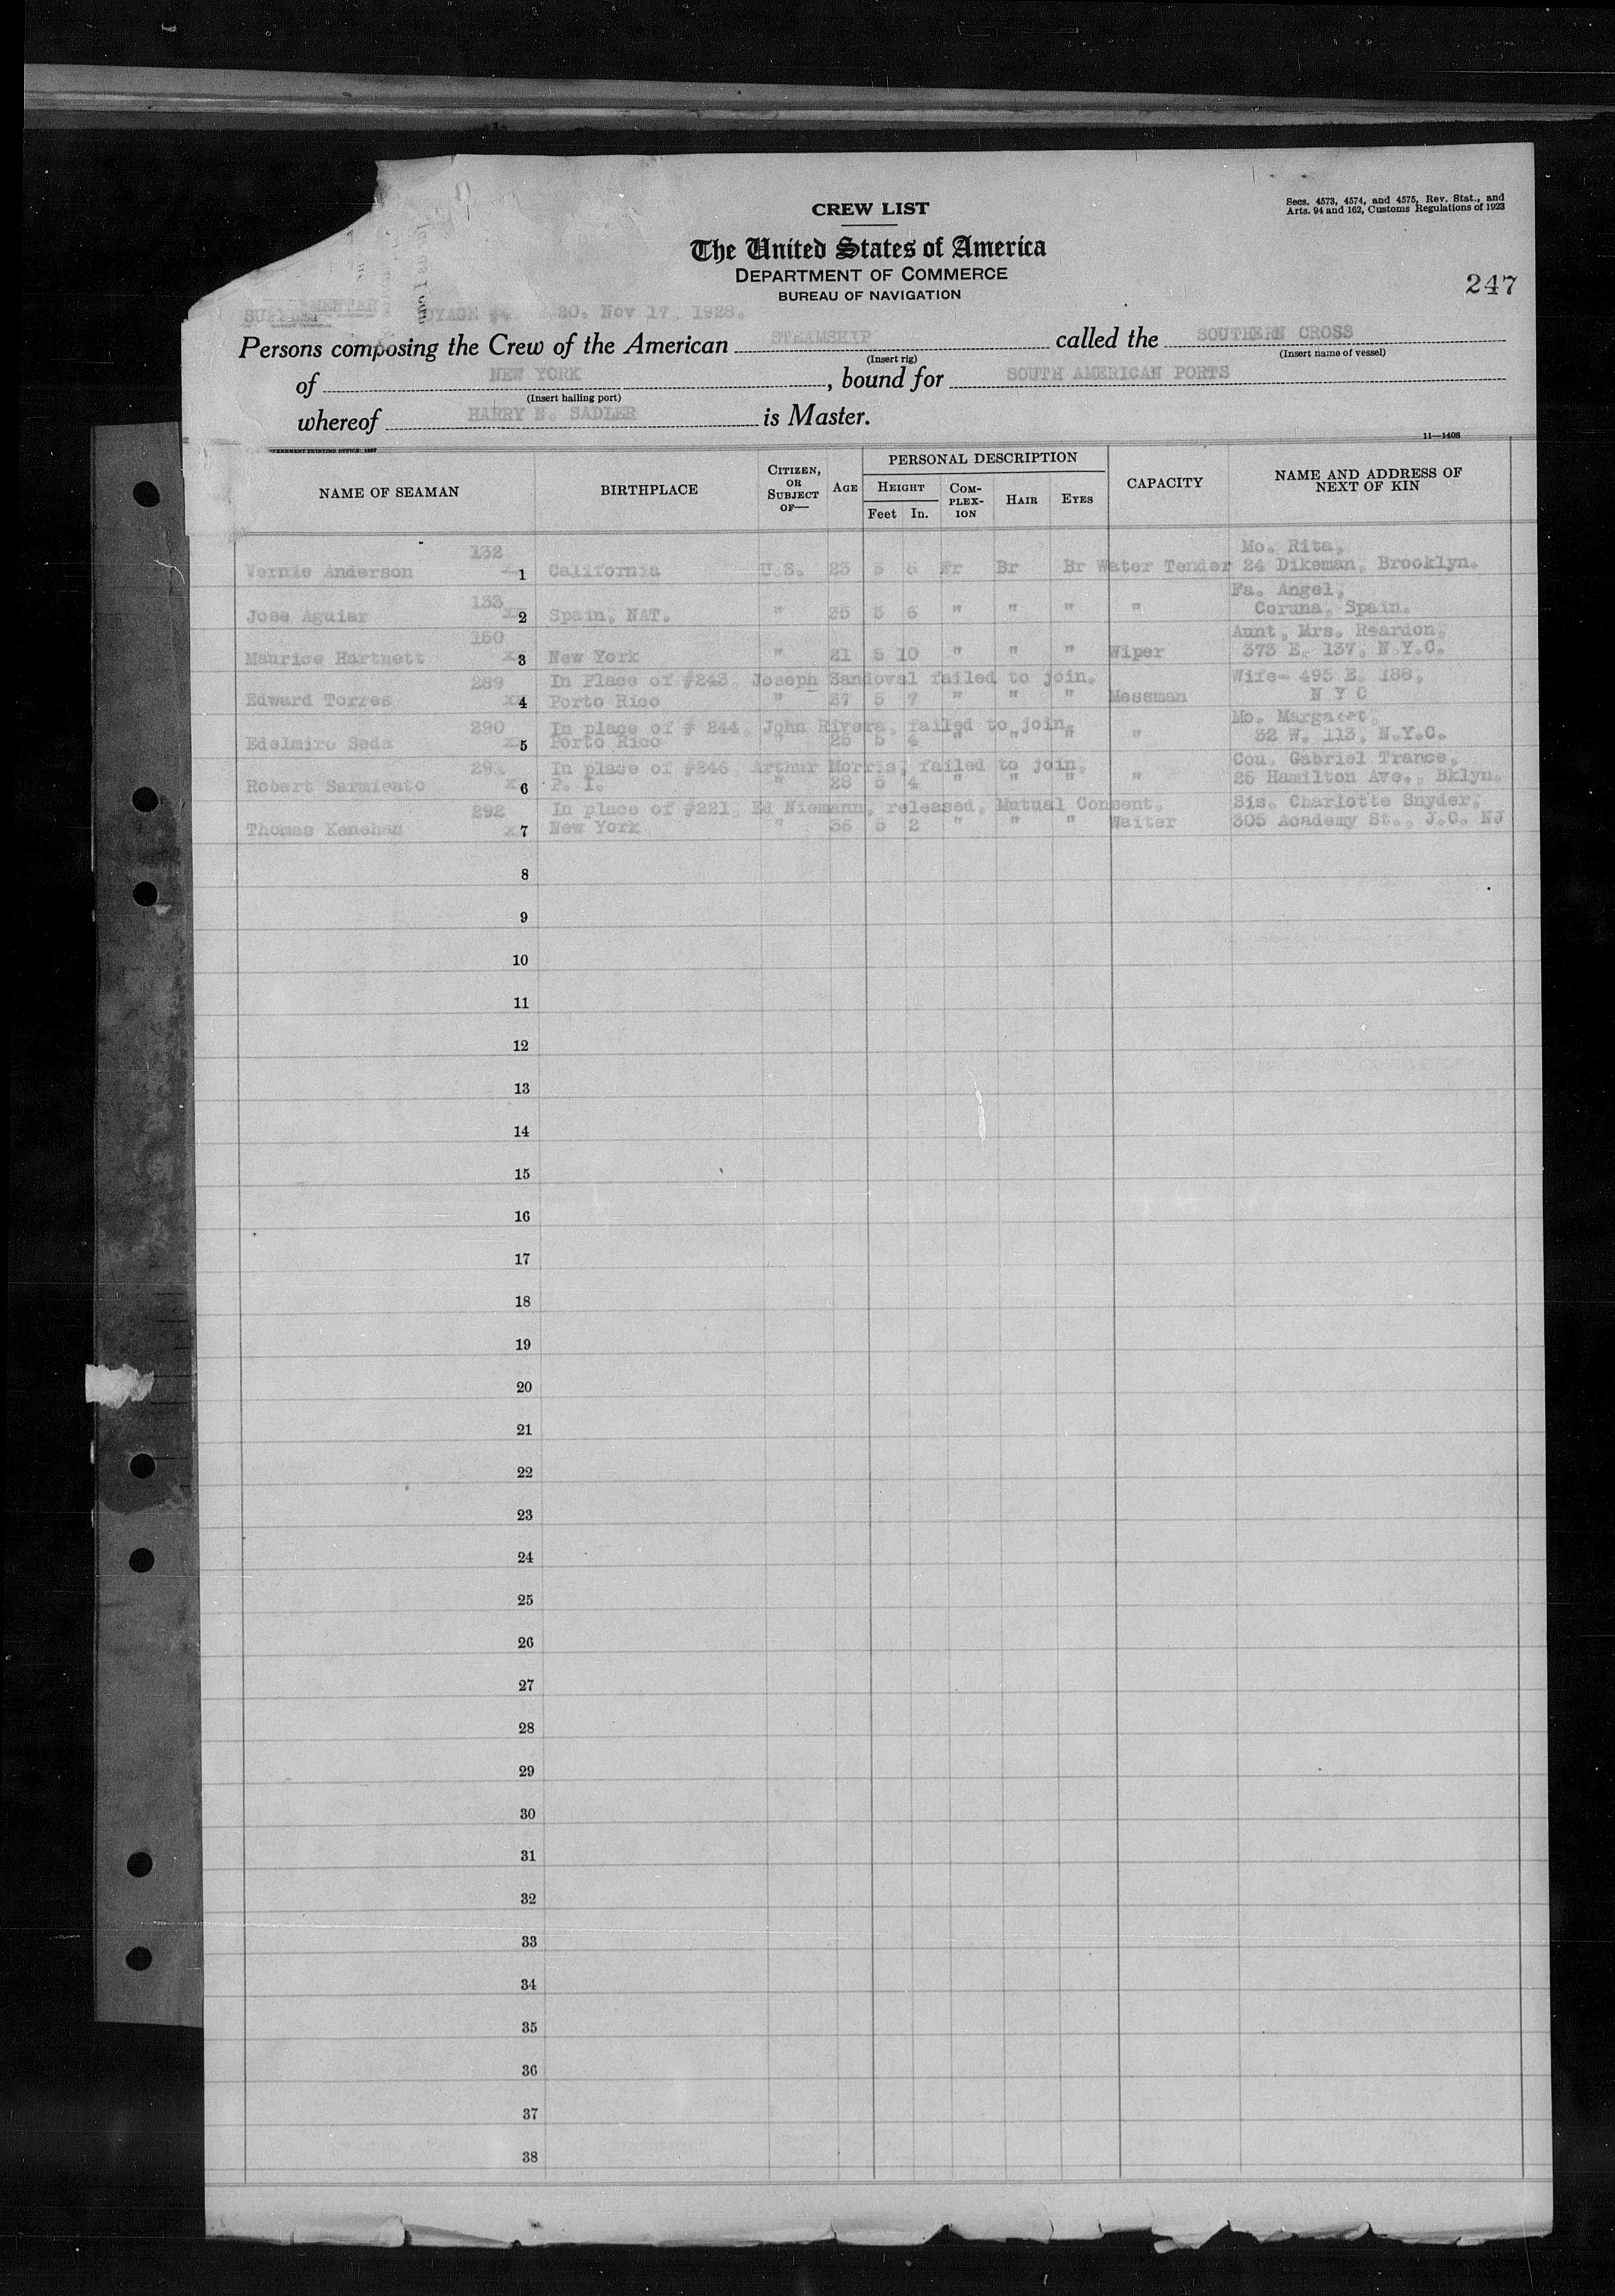 CREW LIST
Secs. 4573, 4574, and 4575, Rev. Stat., and
Arts. 94 and 162, Customs Regulations of 1923
The United States of America
DEPARTMENT OF COMMERCE
BUREAU OF NAVIGATION
247
20. Nov 17, 1928.
Persons composing the Crew of the American STEAMSHIP called the SOUTHERN CROSS
(Insert rig) (Insert name of vessel)
of NEW YORK, bound for SOUTH AMERICAN PORTS
(Insert hailing port)
whereof HARRY N. SADLER is Master.
11—1408
NAME OF SEAMAN BIRTHPLACE CITIZEN, OR SUBJECT OF— AGE PERSONAL DESCRIPTION HEIGHT Feet In. COM-PLEX-ION HAIR EYES CAPACITY NAME AND ADDRESS OF NEXT OF KIN
132 Mo. Rita,
Vernie Anderson 1 California U.S. 23 5 6 Fr Br Br Water Tender 24 Dikeman, Brooklyn.
133 Fa. Angel,
Jose Aguiar 2 Spain, NAT. " 35 5 6 " " " " Coruna, Spain.
150 Aunt, Mrs. Reardon,
Maurice Hartnett 3 New York " 21 5 10 " " " Wiper 373 E. 137, N.Y.C.
289 In Place of #243, Joseph Sandoval failed to join. Wife- 495 E. 188,
Edward Torres 4 Porto Rico " 27 5 7 " " " Messman N Y C
290 In place of # 244, John Rivera, failed to join. Mo. Margaret,
Edelmiro Seda 5 Porto Rico " 25 5 4 " " " " 32 W. 113, N.Y.C.
In place of #246 Arthur Morris, failed to join. Cou. Gabriel Trance,
Robert Sarmiento 6 P. I. " 28 5 4 " " " " 25 Hamilton Ave., Bklyn.
292 In place of #221, Ed Niemann, released, Mutual Consent. Sis. Charlotte Snyder,
Thomas Kenehan 7 New York " 35 5 2 " " " Waiter 305 Academy St., J.C. NJ
8
9
10
11
12
13
14
15
16
17
18
19
20
21
22
23
24
25
26
27
28
29
30
31
32
33
34
35
36
37
38